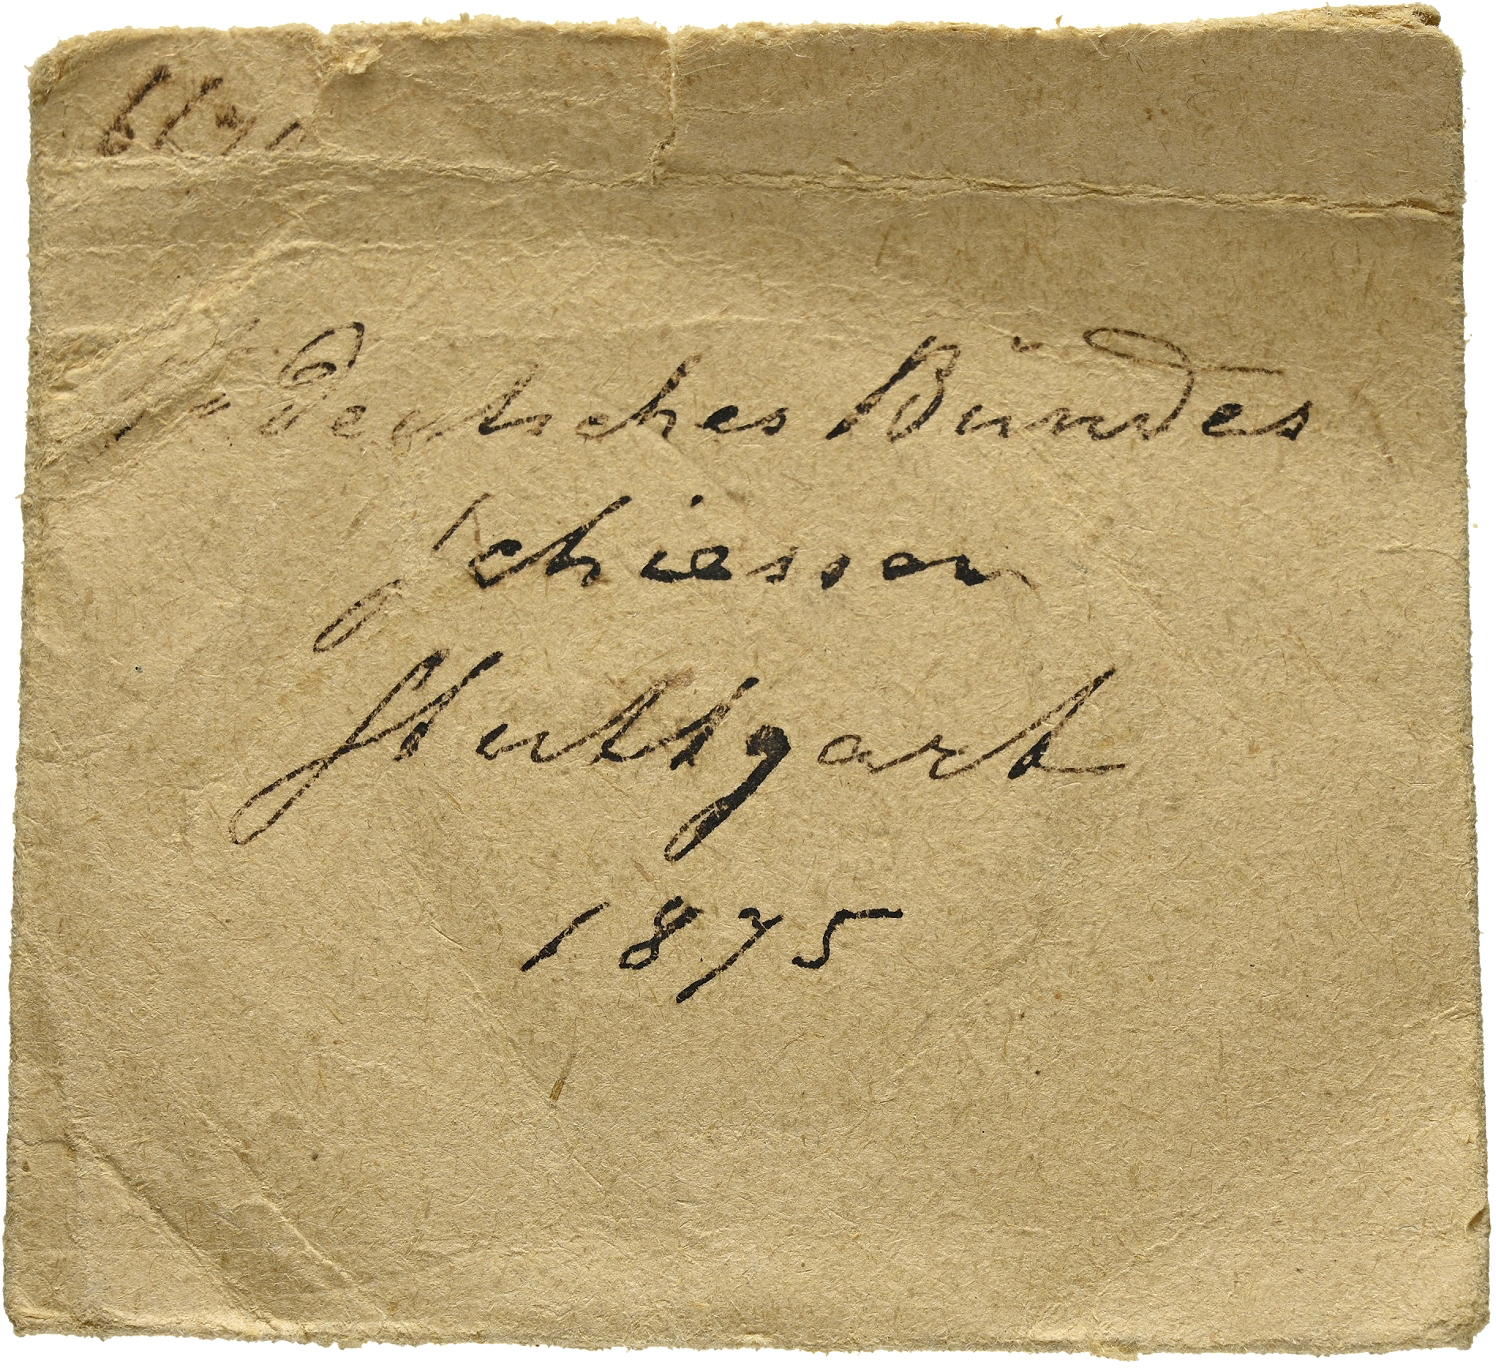 deutsches Bundes
schiessen
Stuttgart
1875